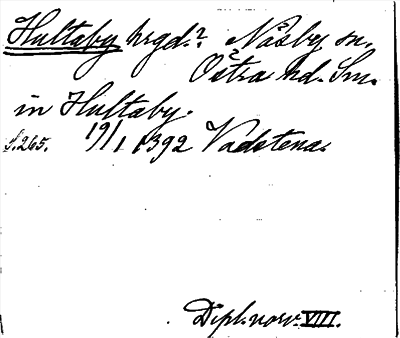 Hultaby hrgd.? Näsby sn.
Östra hd. Sm.
in Hultaby.
s. 265. 19/1 1392 Vadstena.
Dipl. norv. VIII.